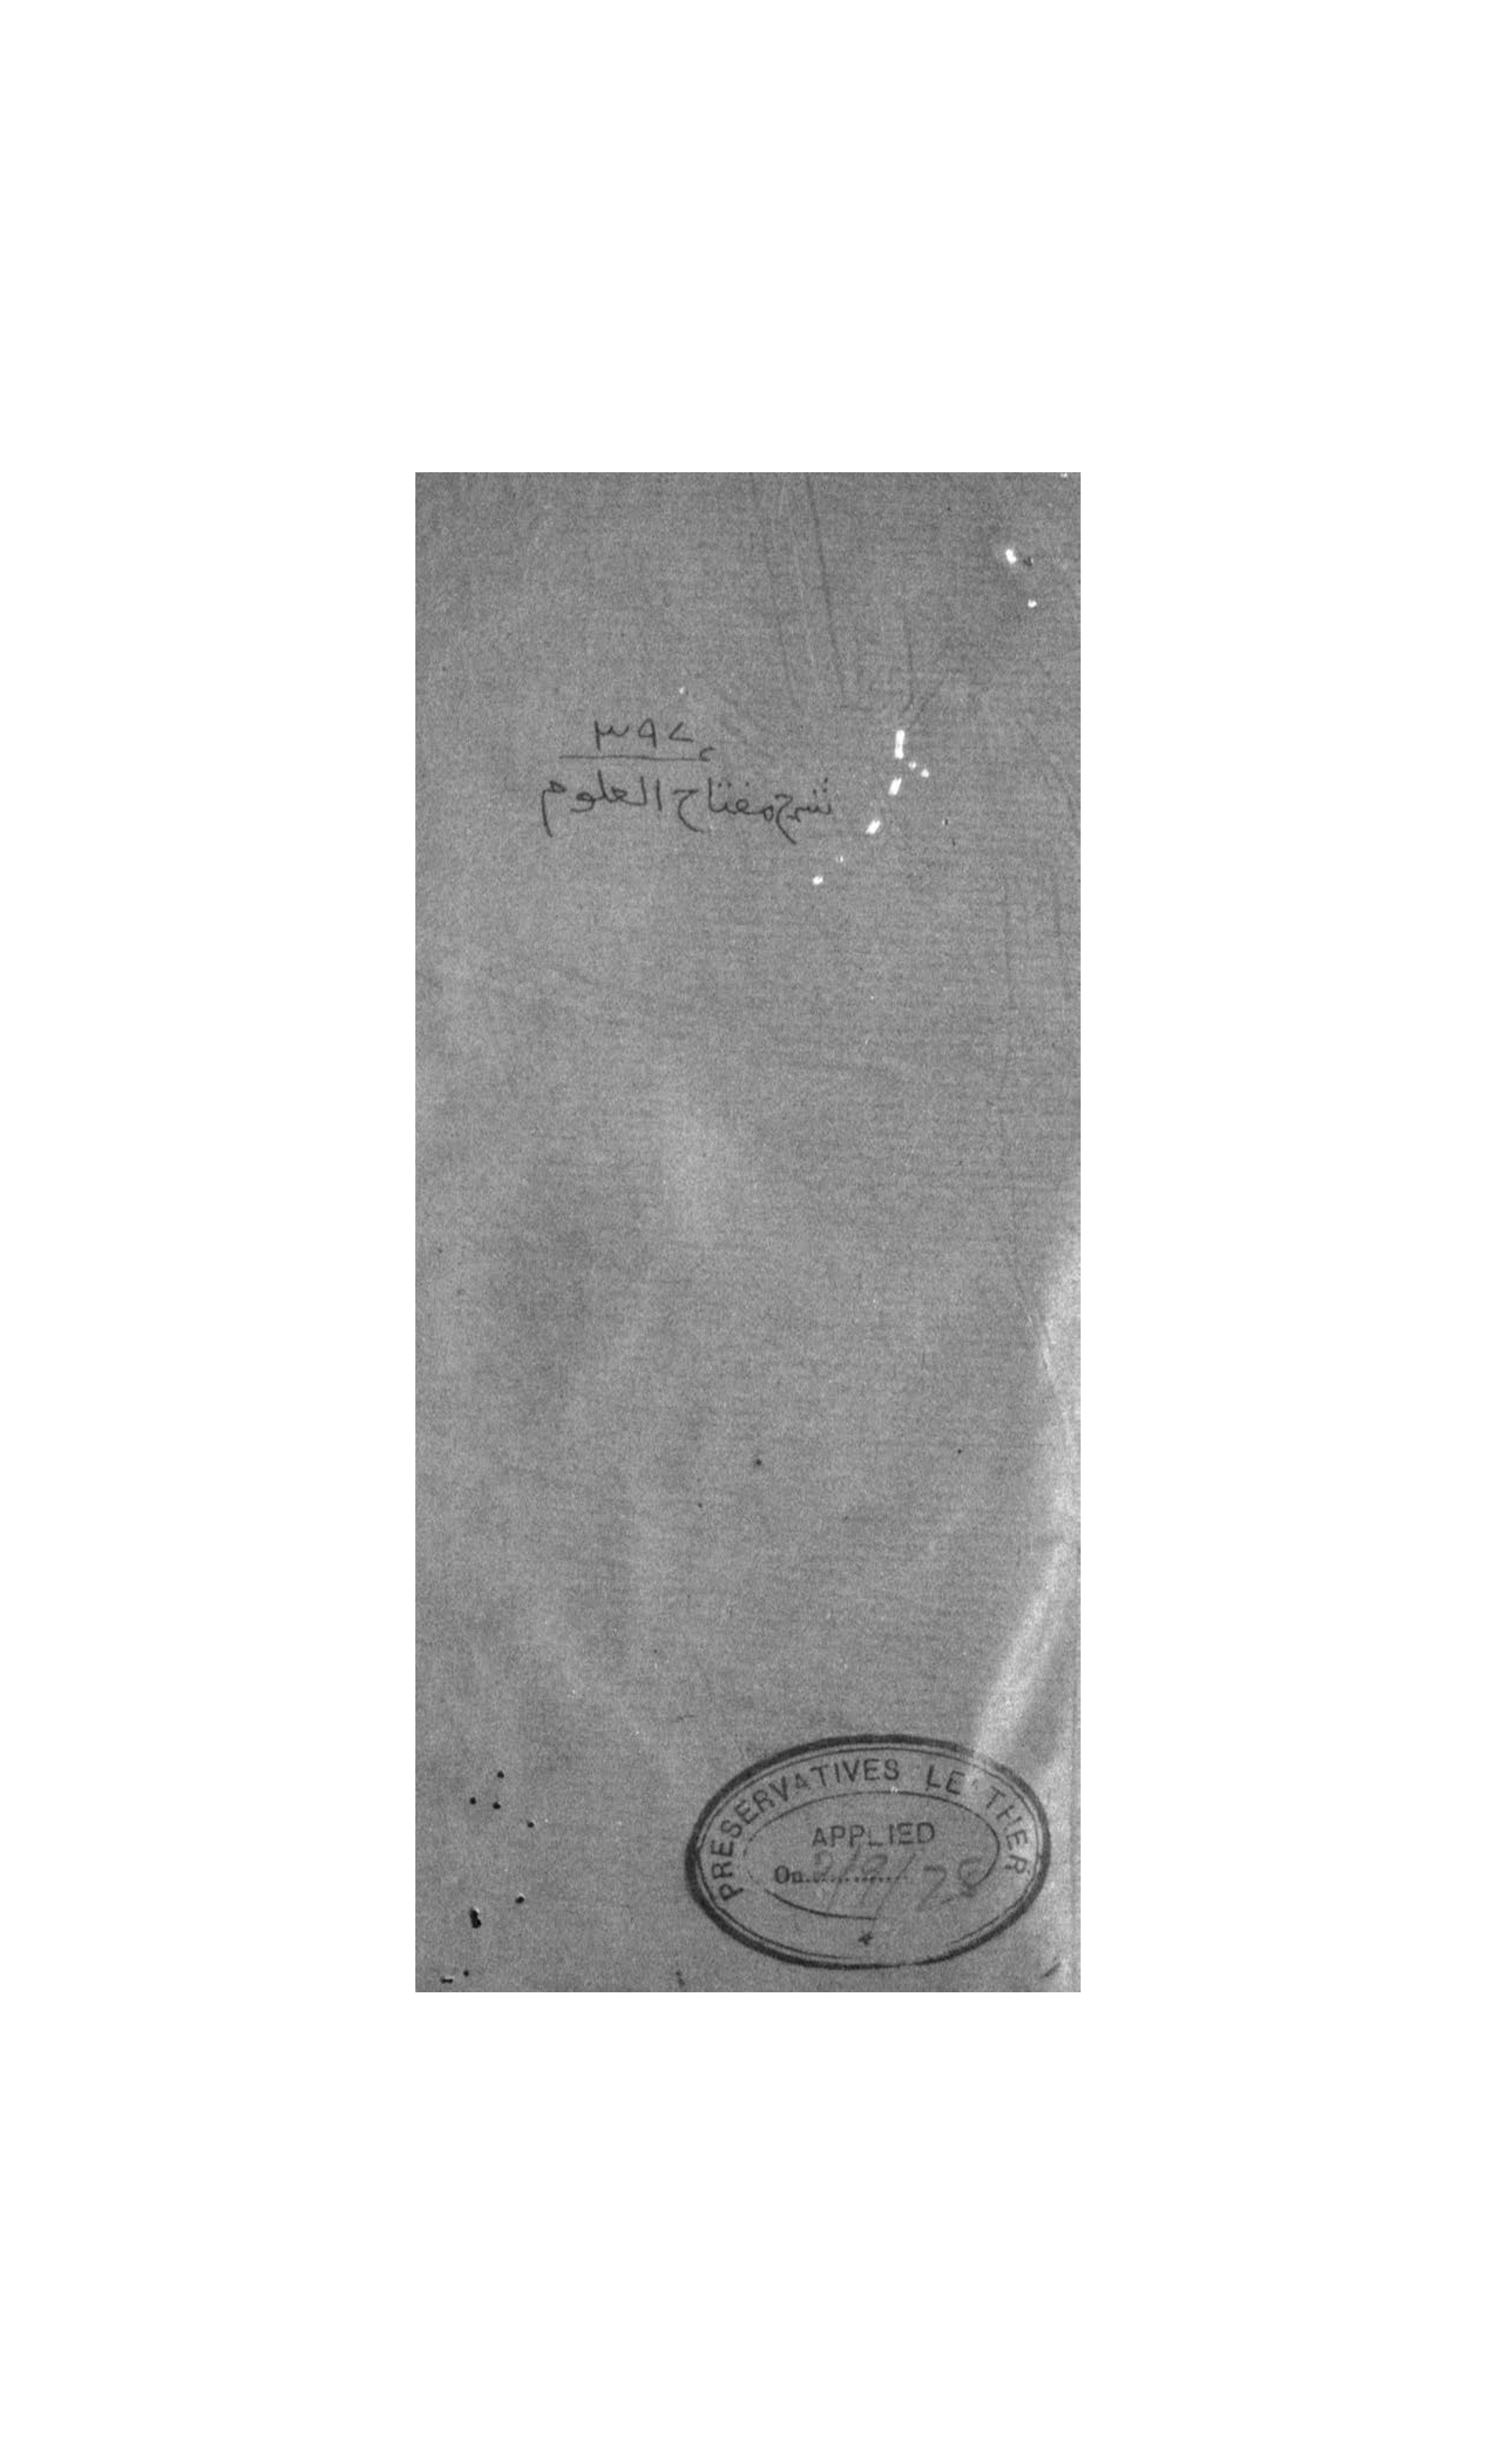 ۳۹۷
شرح مفتاح العلوم
PRESERVATIVES LEATHER
APPLIED
On